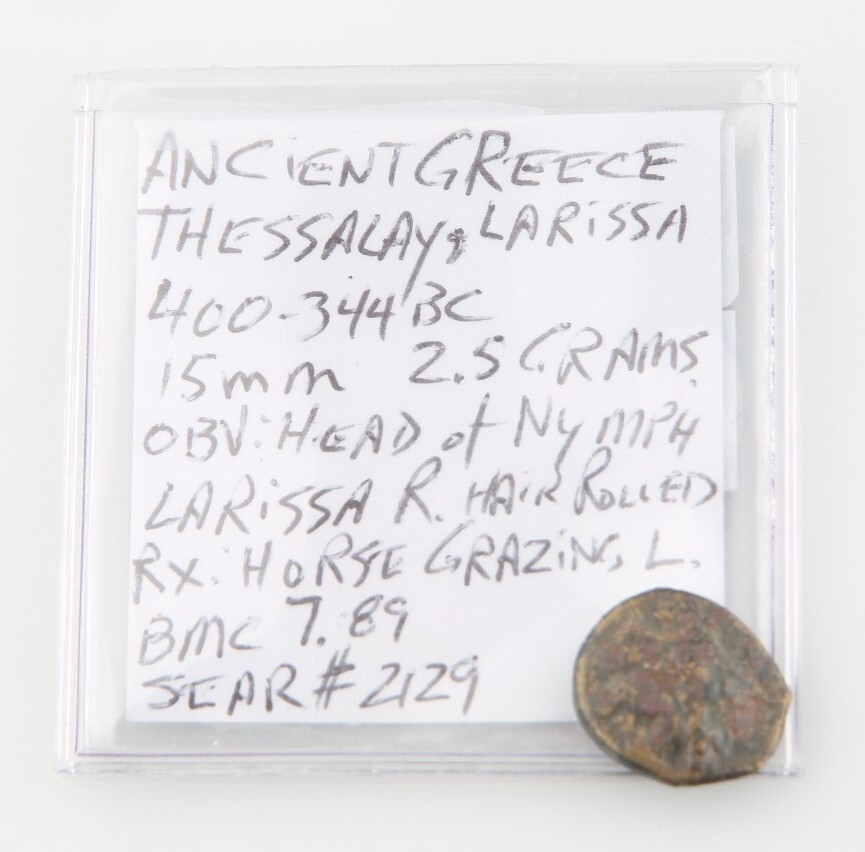 ANCIENT GREECE
THESSALAY, LARISSA
400-344 BC
15mm 2.5 GRAMS
OBV: HEAD of NYMPH
LARISSA R. HAIR ROLLED
RX: HORSE GRAZING L.
BMC 7.89
SEAR # 2129